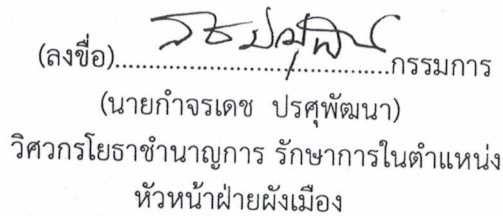 (ลงชื่อ)........................................กรรมการ
(นายกำจรเดช ปรศุพัฒนา)
วิศวกรโยธาชำนาญการ รักษาการในตำแหน่ง
หัวหน้าฝ่ายผังเมือง